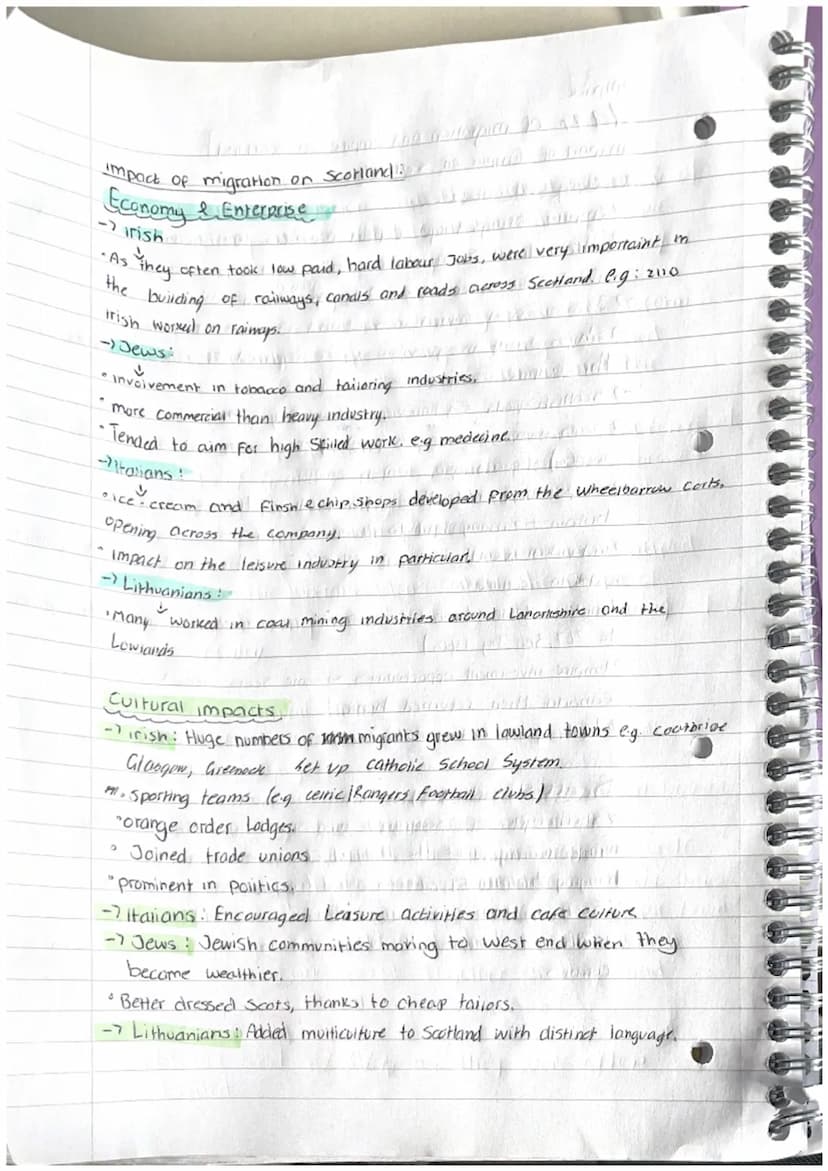 Impact of migration on Scotland:
Economy & Enterprise
→ Irish
• As they often took low paid, hard labour Jobs, were very importaint in
the building of railways, canals and roads across Scotland. e.g: 2110
Irish worked on
→ Jews:
• involvement in tobacco and tailoring industries.
• more commercial than heavy industry.
• Tended to aim for high skilled work. e.g medecine.
→ Italians:
• ice-cream and finsh & chip shops developed from the wheelbarrow carts,
opening across the company.
• impact on the leisure industry in particular.
→ Lithuanians:
• Many worked in coal mining industries around Lanarkshire and the
Lowlands
Cultural impacts
→ Irish: Huge numbers of migrants grew in lowland towns e.g.
Glasgow, Greenock set up catholic School System.
• sporting teams (e.g celtic/Rangers Football clubs)
• orange order Lodges.
• Joined trade unions
• prominent in politics.
→ Italians: Encouraged Leasure activities and cafe culture
→ Jews: Jewish communities moving to west end when they
become wealthier.
• Better dressed Scots, thanks to cheap tailors.
→ Lithuanians: Added multiculture to Scotland with distinct language.